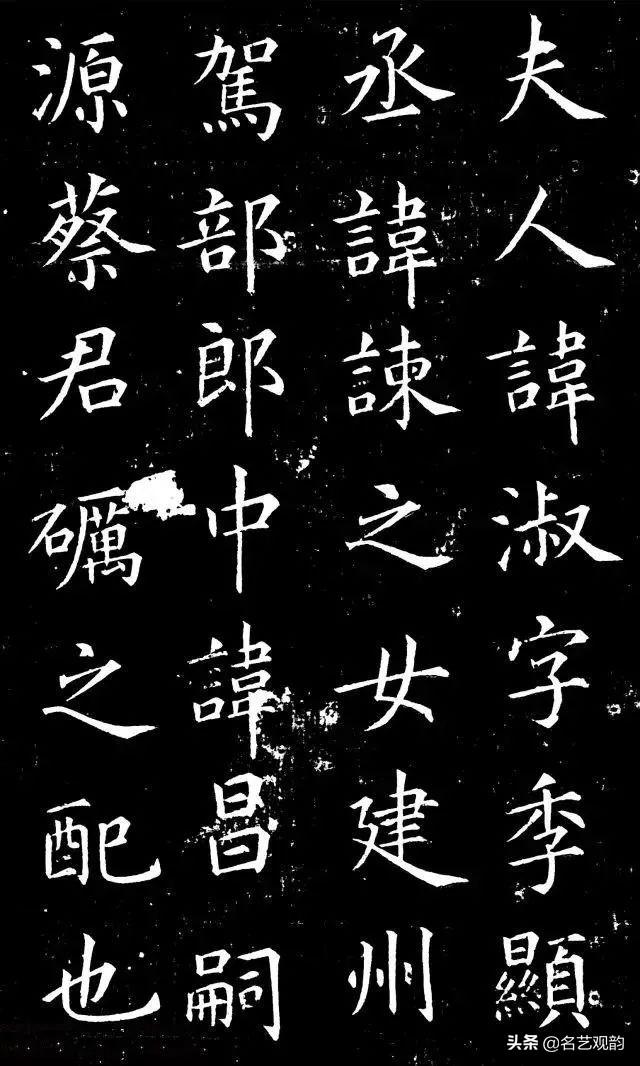 夫人諱淑字季顯
丞諱諫之女建州
駕部郎中諱昌嗣
源蔡君礪之配也
头条 @名艺观韵